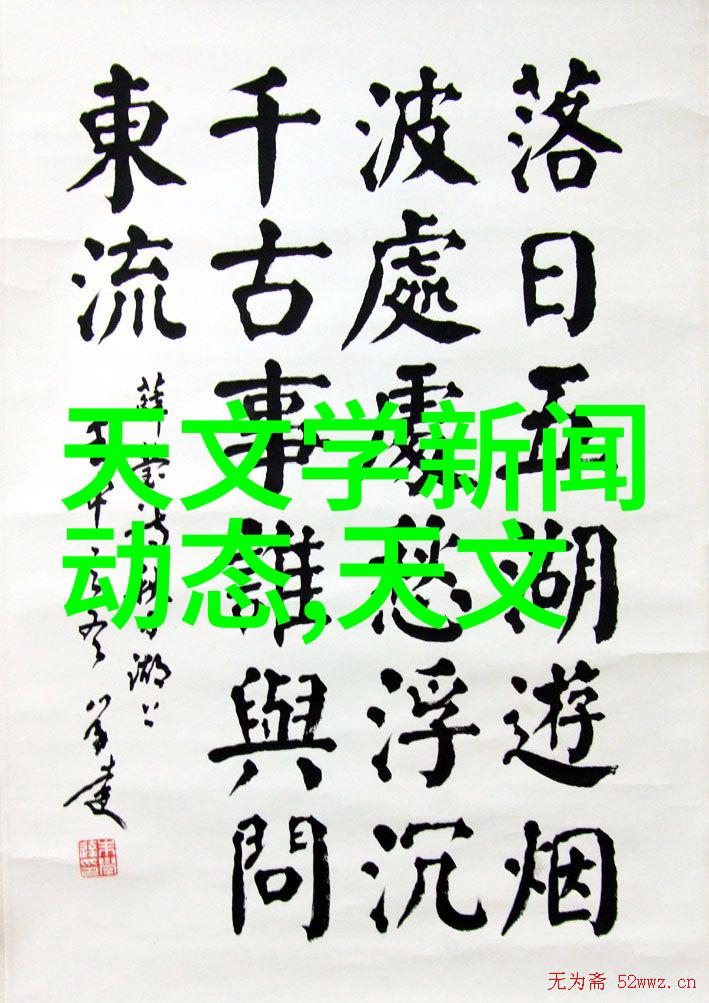 落日五湖遊烟
波處處愁浮沉
千古事誰與問
東流
薛瑩詩湖上
天文学新闻
动态,天文
无为斋 52wwz.cn